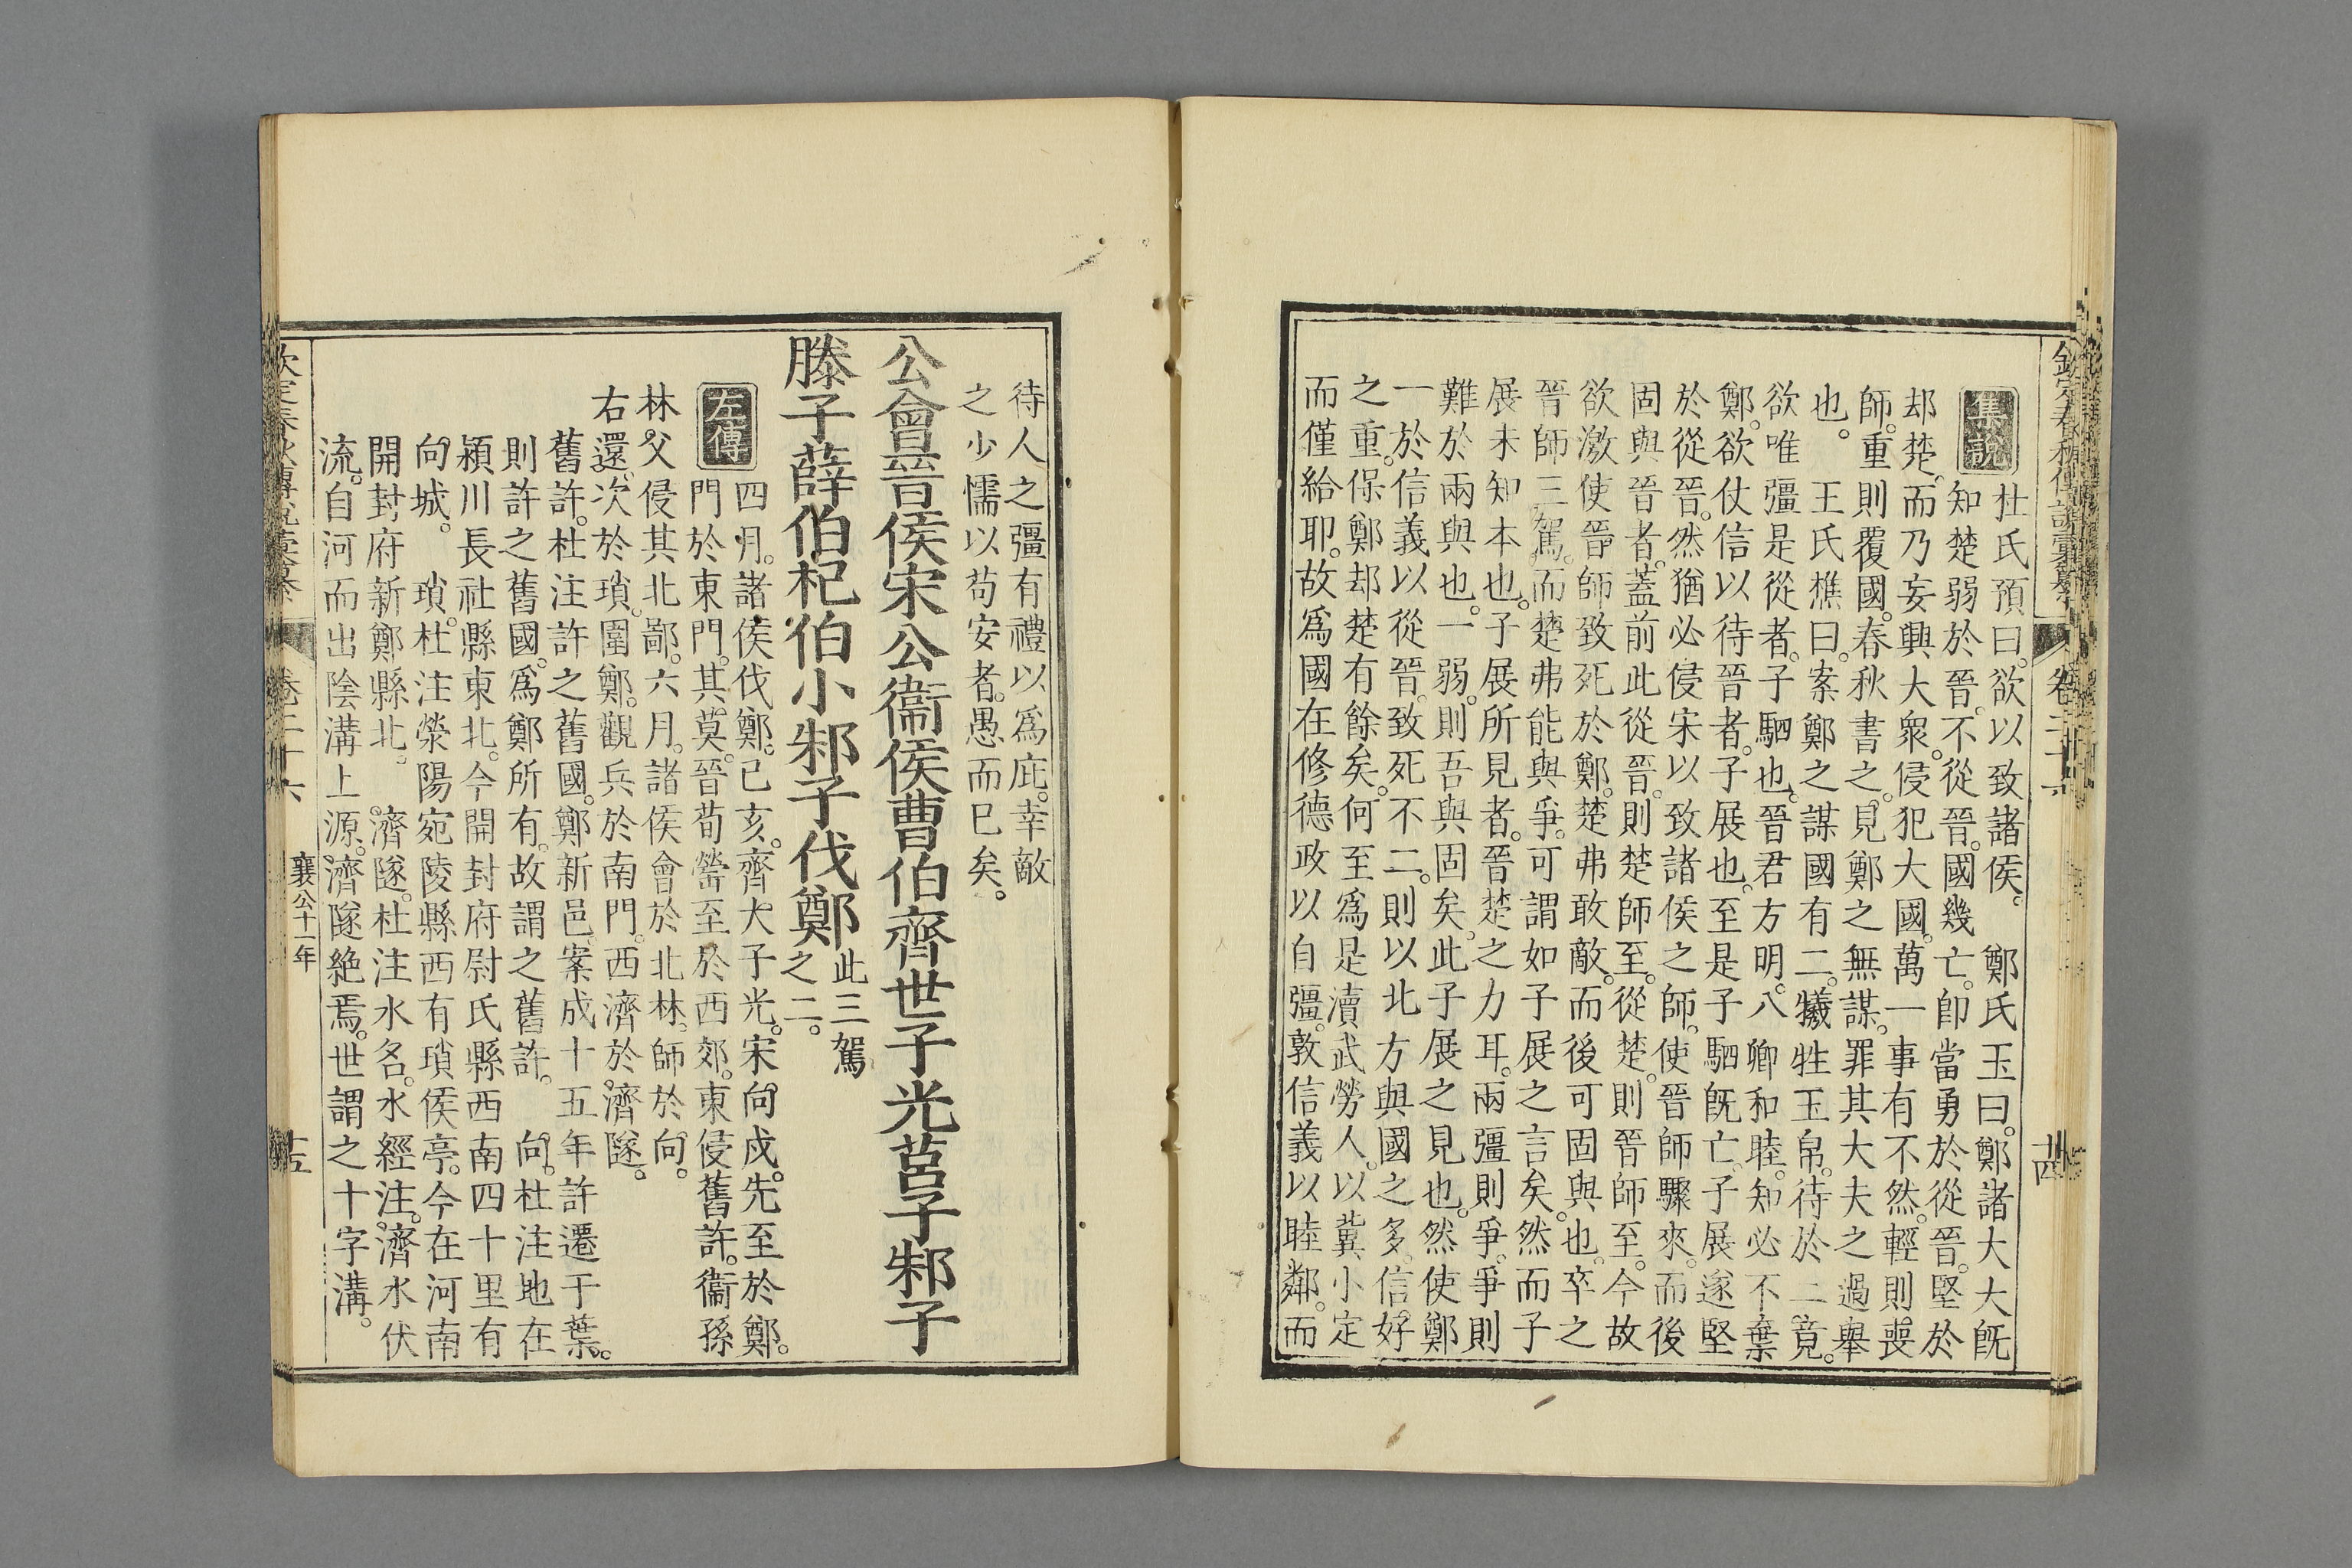 欽定春秋傳說彙纂 卷二十六 十四
集說
杜氏預曰欲以致諸侯。 鄭氏玉曰鄭諸大夫既
知楚弱於晉。不從晉。國幾亡。卽當勇於從晉。堅於
却楚。而乃妄興大衆。侵犯大國。萬一事有不然。輕則喪
師。重則覆國。春秋書之。見鄭之無謀。罪其大夫之過舉
也。 王氏樵曰。案鄭之謀國有二。犧牲玉帛。待於二竟。
欲唯彊是從者。子駟也。晉君方明。八卿和睦。知必不棄
鄭。欲仗信以待晉者。子展也。至是子駟旣亡。子展遂堅
於從晉。然猶必侵宋以致諸侯之師。使晉師驟來。而後
固與晉者。蓋前此從晉。則楚師至。從楚。則晉師至。今故
欲激使晉師致死於鄭。楚弗敢敵。而後可固與也。卒之
晉師三駕。而楚弗能與爭。可謂如子展之言矣。然而子
展未知本也。子展所見者。晉楚之力耳。兩彊則爭。爭則
難於兩與也。一弱。則吾與固矣。此子展之見也。然使鄭
一於信義以從晉。致死不二。則以北方與國之多。信好
之重。保鄭却楚有餘矣。何至爲是瀆武勞人。以冀小定
而僅給耶。故爲國在修德政以自彊。敦信義以睦鄰。而
待人之彊有禮以爲庇。幸敵
之少懦以苟安者。愚而已矣。
公會晉侯宋公衞侯曹伯齊世子光莒子邾子
滕子薛伯杞伯小邾子伐鄭此三駕
之二。
左傳
四月。諸侯伐鄭。己亥。齊大子光。宋向戌。先至於鄭。
門於東門。其莫。晉荀罃至於西郊。東侵舊許。衞孫
林父侵其北鄙。六月。諸侯會於北林。師於向。
右還。次於瑣。圍鄭。觀兵於南門。西濟於濟隧。
舊許。杜注許之舊國。鄭新邑案成十五年許遷于葉。
則許之舊國。爲鄭所有。故謂之舊許。 向。杜注地在
潁川長社縣東北。今開封府尉氏縣西南四十里有
向城。 瑣。杜注滎陽宛陵縣西有瑣侯亭。今在河南
開封府新鄭縣北。 濟隧。杜注水名。水經注。濟水伏
流。自河而出陰溝上源。濟隧絕焉。世謂之十字溝。
欽定春秋傳說彙纂 卷二十六 襄公十一年 十五